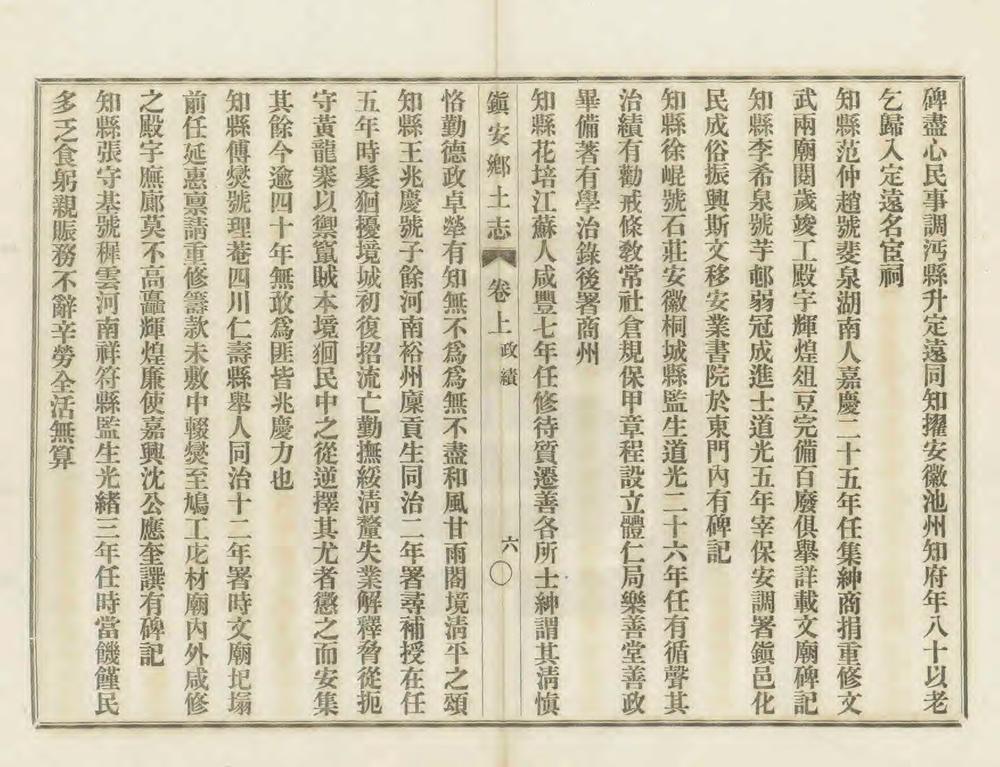 碑盡心民事調沔縣升定遠同知擢安徽池州知府年八十以老
乞歸入定遠名宦祠
知縣范仲趙號斐泉湖南人嘉慶二十五年任集紳商捐重修文
武兩廟閱歲竣工殿宇輝煌俎豆完備百廢俱舉詳載文廟碑記
知縣李希泉號芋邨弱冠成進士道光五年宰保安調署鎭邑化
民成俗振興斯文移安業書院於東門內有碑記
知縣徐崐號石莊安徽桐城縣監生道光二十六年任有循聲其
治績有勸戒條敎常社倉規保甲章程設立體仁局樂善堂善政
畢備著有學治錄後署商州
知縣花培江蘇人咸豐七年任修待質遷善各所士紳謂其淸愼
鎭安鄕土志 卷上 政績 六 〇
恪勤德政卓犖有知無不爲爲無不盡和風甘雨闔境淸平之頌
知縣王兆慶號子餘河南裕州廩貢生同治二年署尋補授在任
五年時髮㹢擾境城初復招流亡勤撫綏淸釐失業解釋脅從扼
守黃龍寨以禦竄賊本境㹢民中之從逆擇其尤者懲之而安集
其餘今逾四十年無敢爲匪皆兆慶力也
知縣傅爕號理菴四川仁壽縣舉人同治十二年署時文廟圯塌
前任延惠禀請重修籌款未敷中輟爕至鳩工庀材廟內外咸修
之殿宇廡廊莫不高矗輝煌廉使嘉興沈公應奎譔有碑記
知縣張守基號穉雲河南祥符縣監生光緒三年任時當饑饉民
多乏食躬親賑務不辭辛勞全活無算